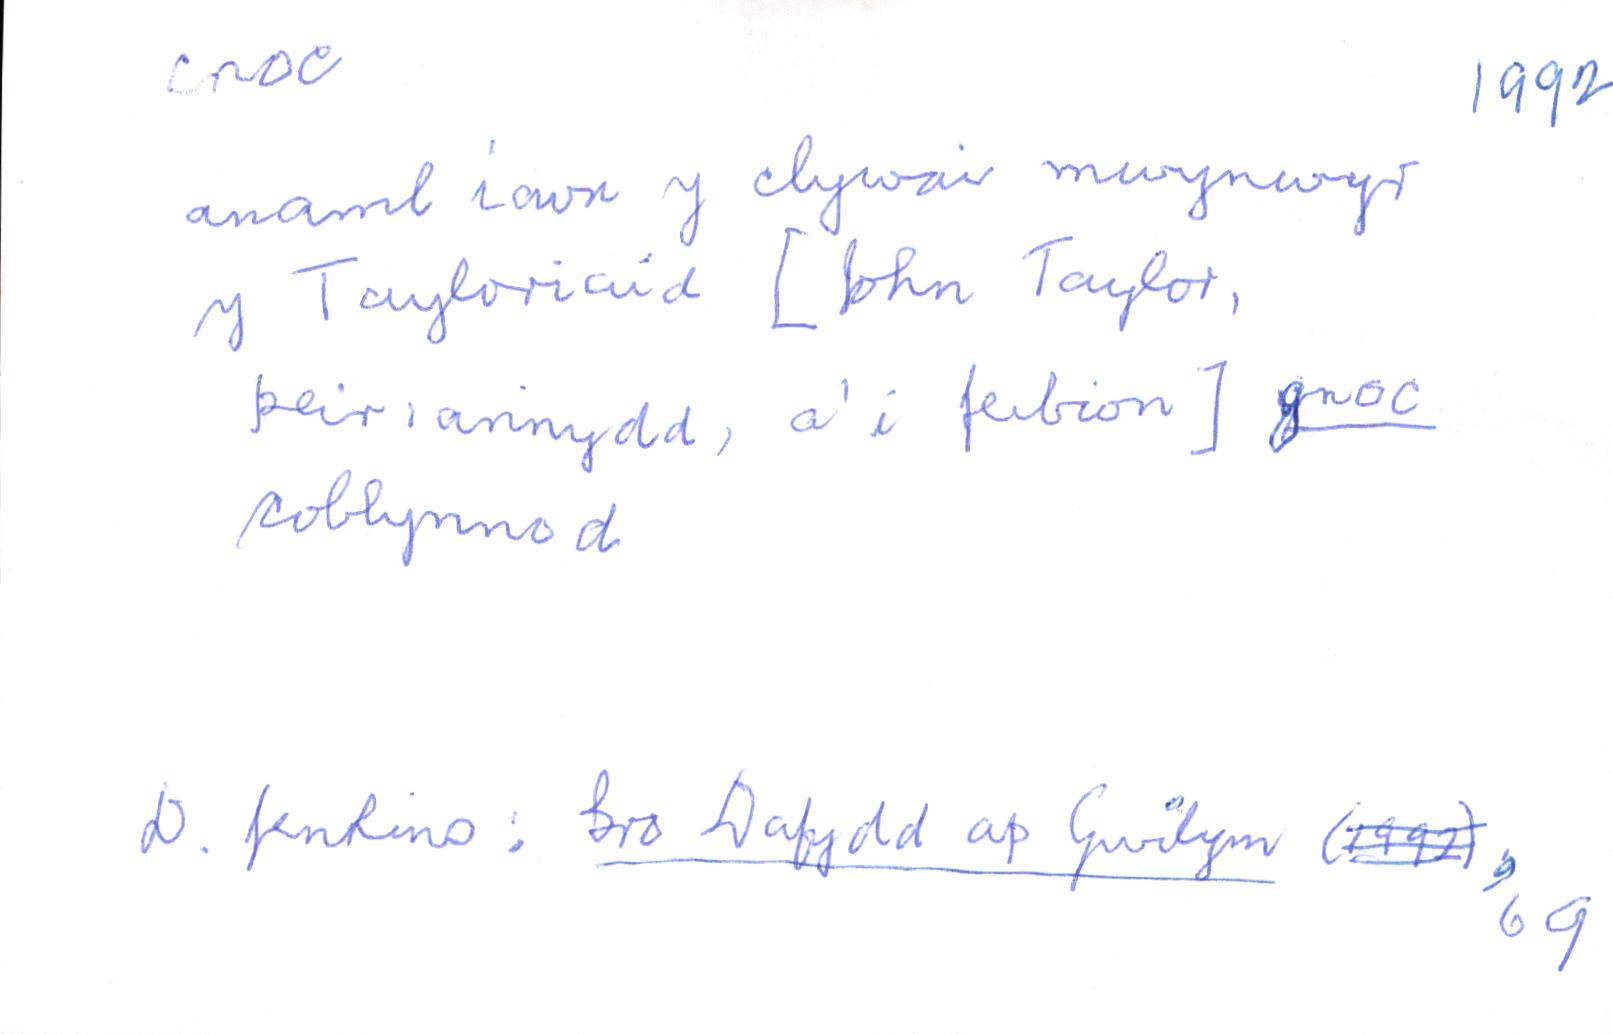 cnoc
1992
anaml iawn y clywai mwynwyr
y Tayloriaid [John Taylor,
peiriannydd, a'i feibion] gnoc
coblynnod
D. Jenkins: Bro Dafydd ap Gwilym (1992),
69